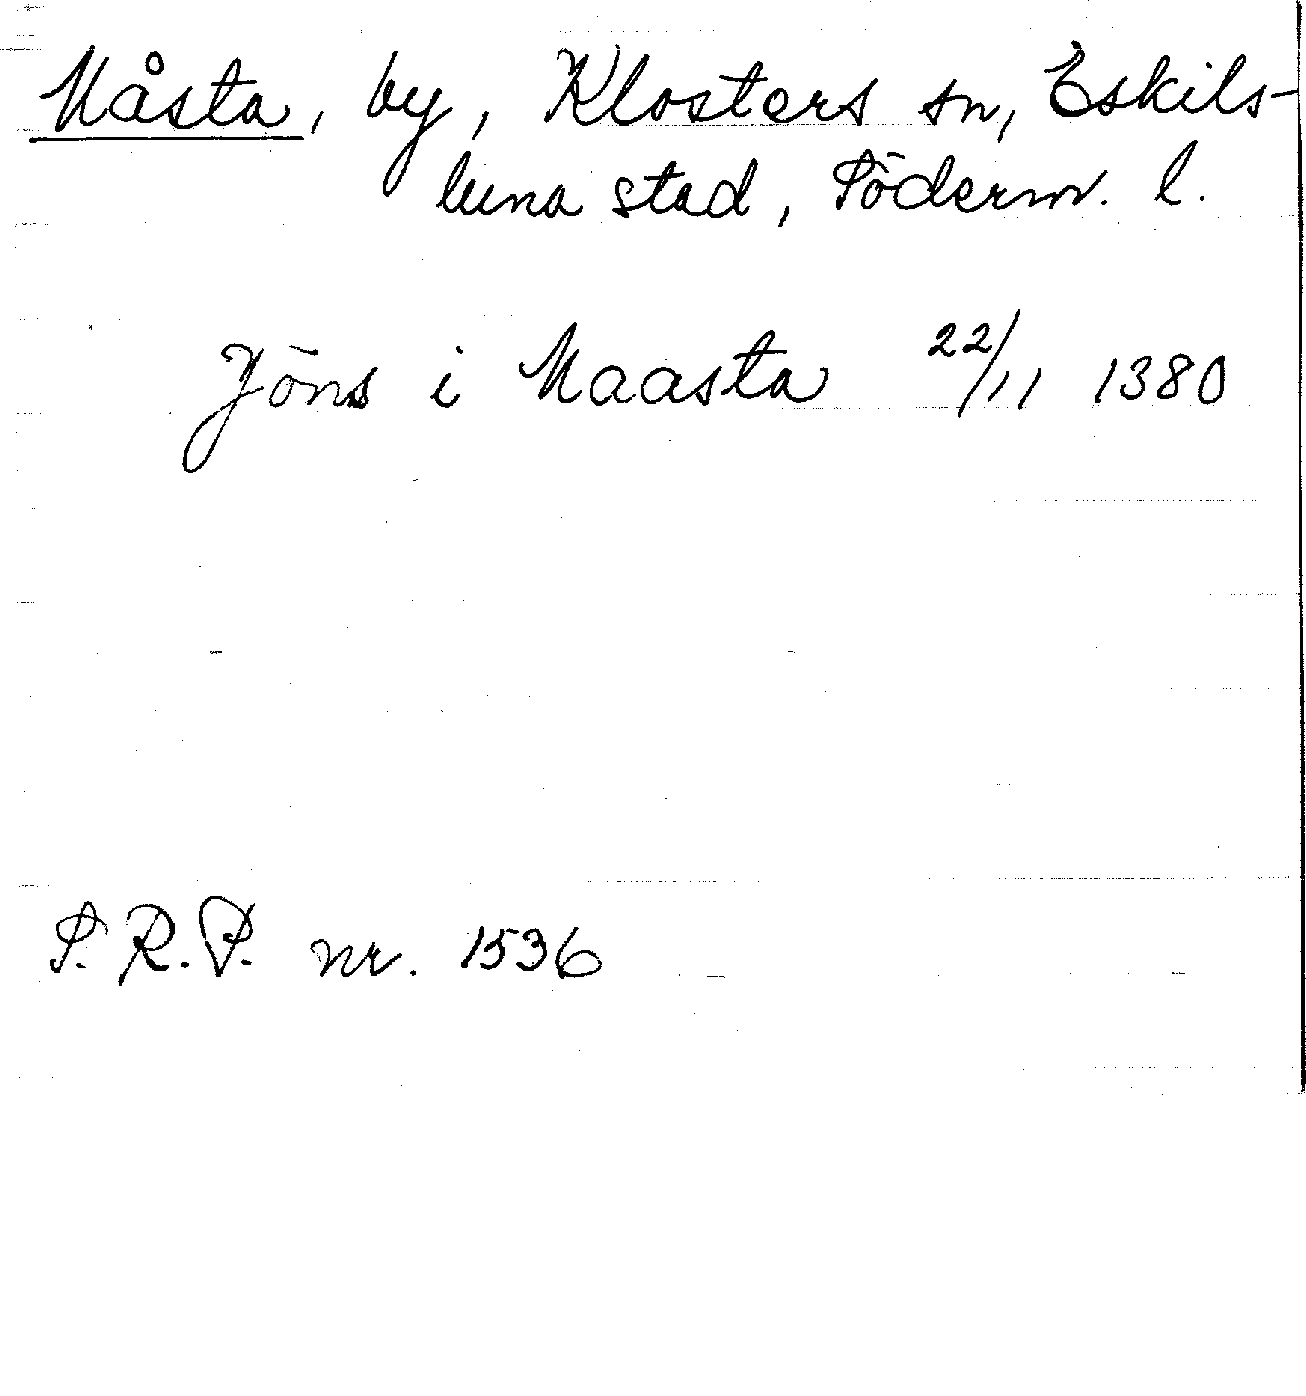 Måsta, by, Klosters sn, Eskils-
tuna stad, Söderm. l.
Jöns i Maasta 22/11 1380
S.R.P. nr. 1536